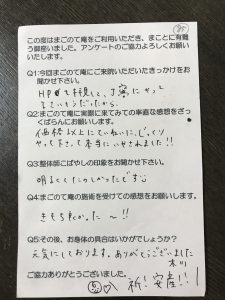 この度はまごのて庵をご利用いただき、まことに有難
う御座いました。アンケートのご協力よろしくお願い
いたします。
Q1:今回まごのて庵にご来院いただいたきっかけをお
聞かせ下さい。
HPを拝見して、丁寧にやって
Q2:まごのて庵に実際に来てみての率直な感想をざっ
くばらんにお願いします。
価格以上にていねいに、じっくり
やって下さって本当にいやされました!!
Q3:整体師こばやしの印象をお聞かせ下さい。
明るくてたのしかったです
Q4:まごのて庵の施術を受けての感想をお願いします。
きもちよかった〜!!
Q5:その後、お身体の具合はいかがでしょうか?
元気にしております。ありがとうございました
ご協力ありがとうございました。
祈!安産!!